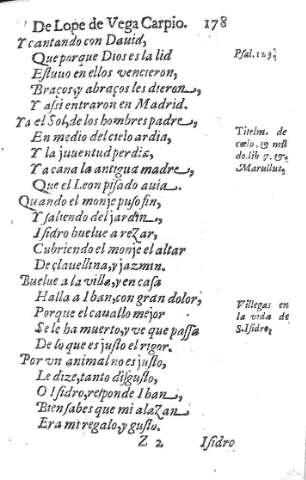 De Lope de Vega Carpio. 178
Y cantando con Dauid,
Que porque Dios es la lid
Estuuo en ellos vencieron,
Braços, y abraços les dieron,
Y assi entraron en Madrid.
Psal. 123.
Ya el Sol, de los hombres padre,
En medio del cielo ardia,
Y la juuentud perdia,
Y a cana la antigua madre,
Que el Leon pisado auia.
Titelm. de
cœlo, & mũ
do.lib 7.
Marullus.
Quando el monje puso fin,
Y saliendo del jardin,
Isidro buelue a rezar,
Cubriendo el monje el altar
De clauellina, y jazmin.
Buelue a la villa, y en casa
Halla a Iban, con gran dolor,
Porque el cauallo mejor
Se le ha muerto, y ve que passa
De lo que es justo el rigor.
Villegas en
la vida de
S. Isidro,
Por vn animal no es justo,
Le dize, tanto disgusto,
O Isidro, responde Iban,
Bien sabes que mi alazan
Era mi regalo, y gusto.
Z 2 Isidro